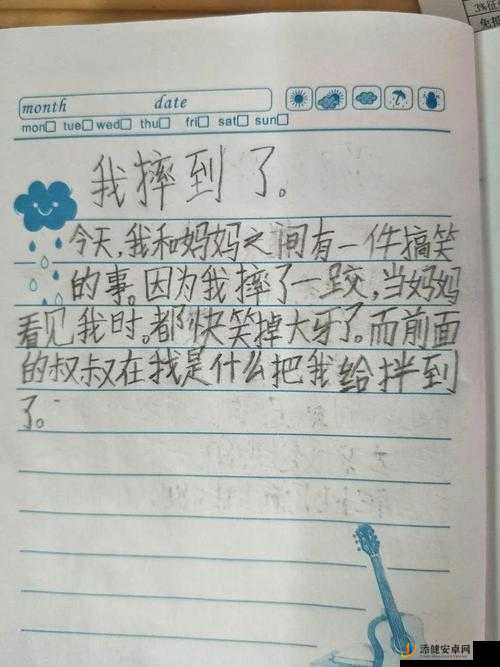 month date
mon tue wed thu fri sat sun
我摔到了。
今天,我和妈妈之间有一件搞笑
的事。因为我摔了一跤,当妈妈
看见我时。都快笑掉大牙了。而前面
的叔叔在找是什么把我给拌到
了。
添健安卓网